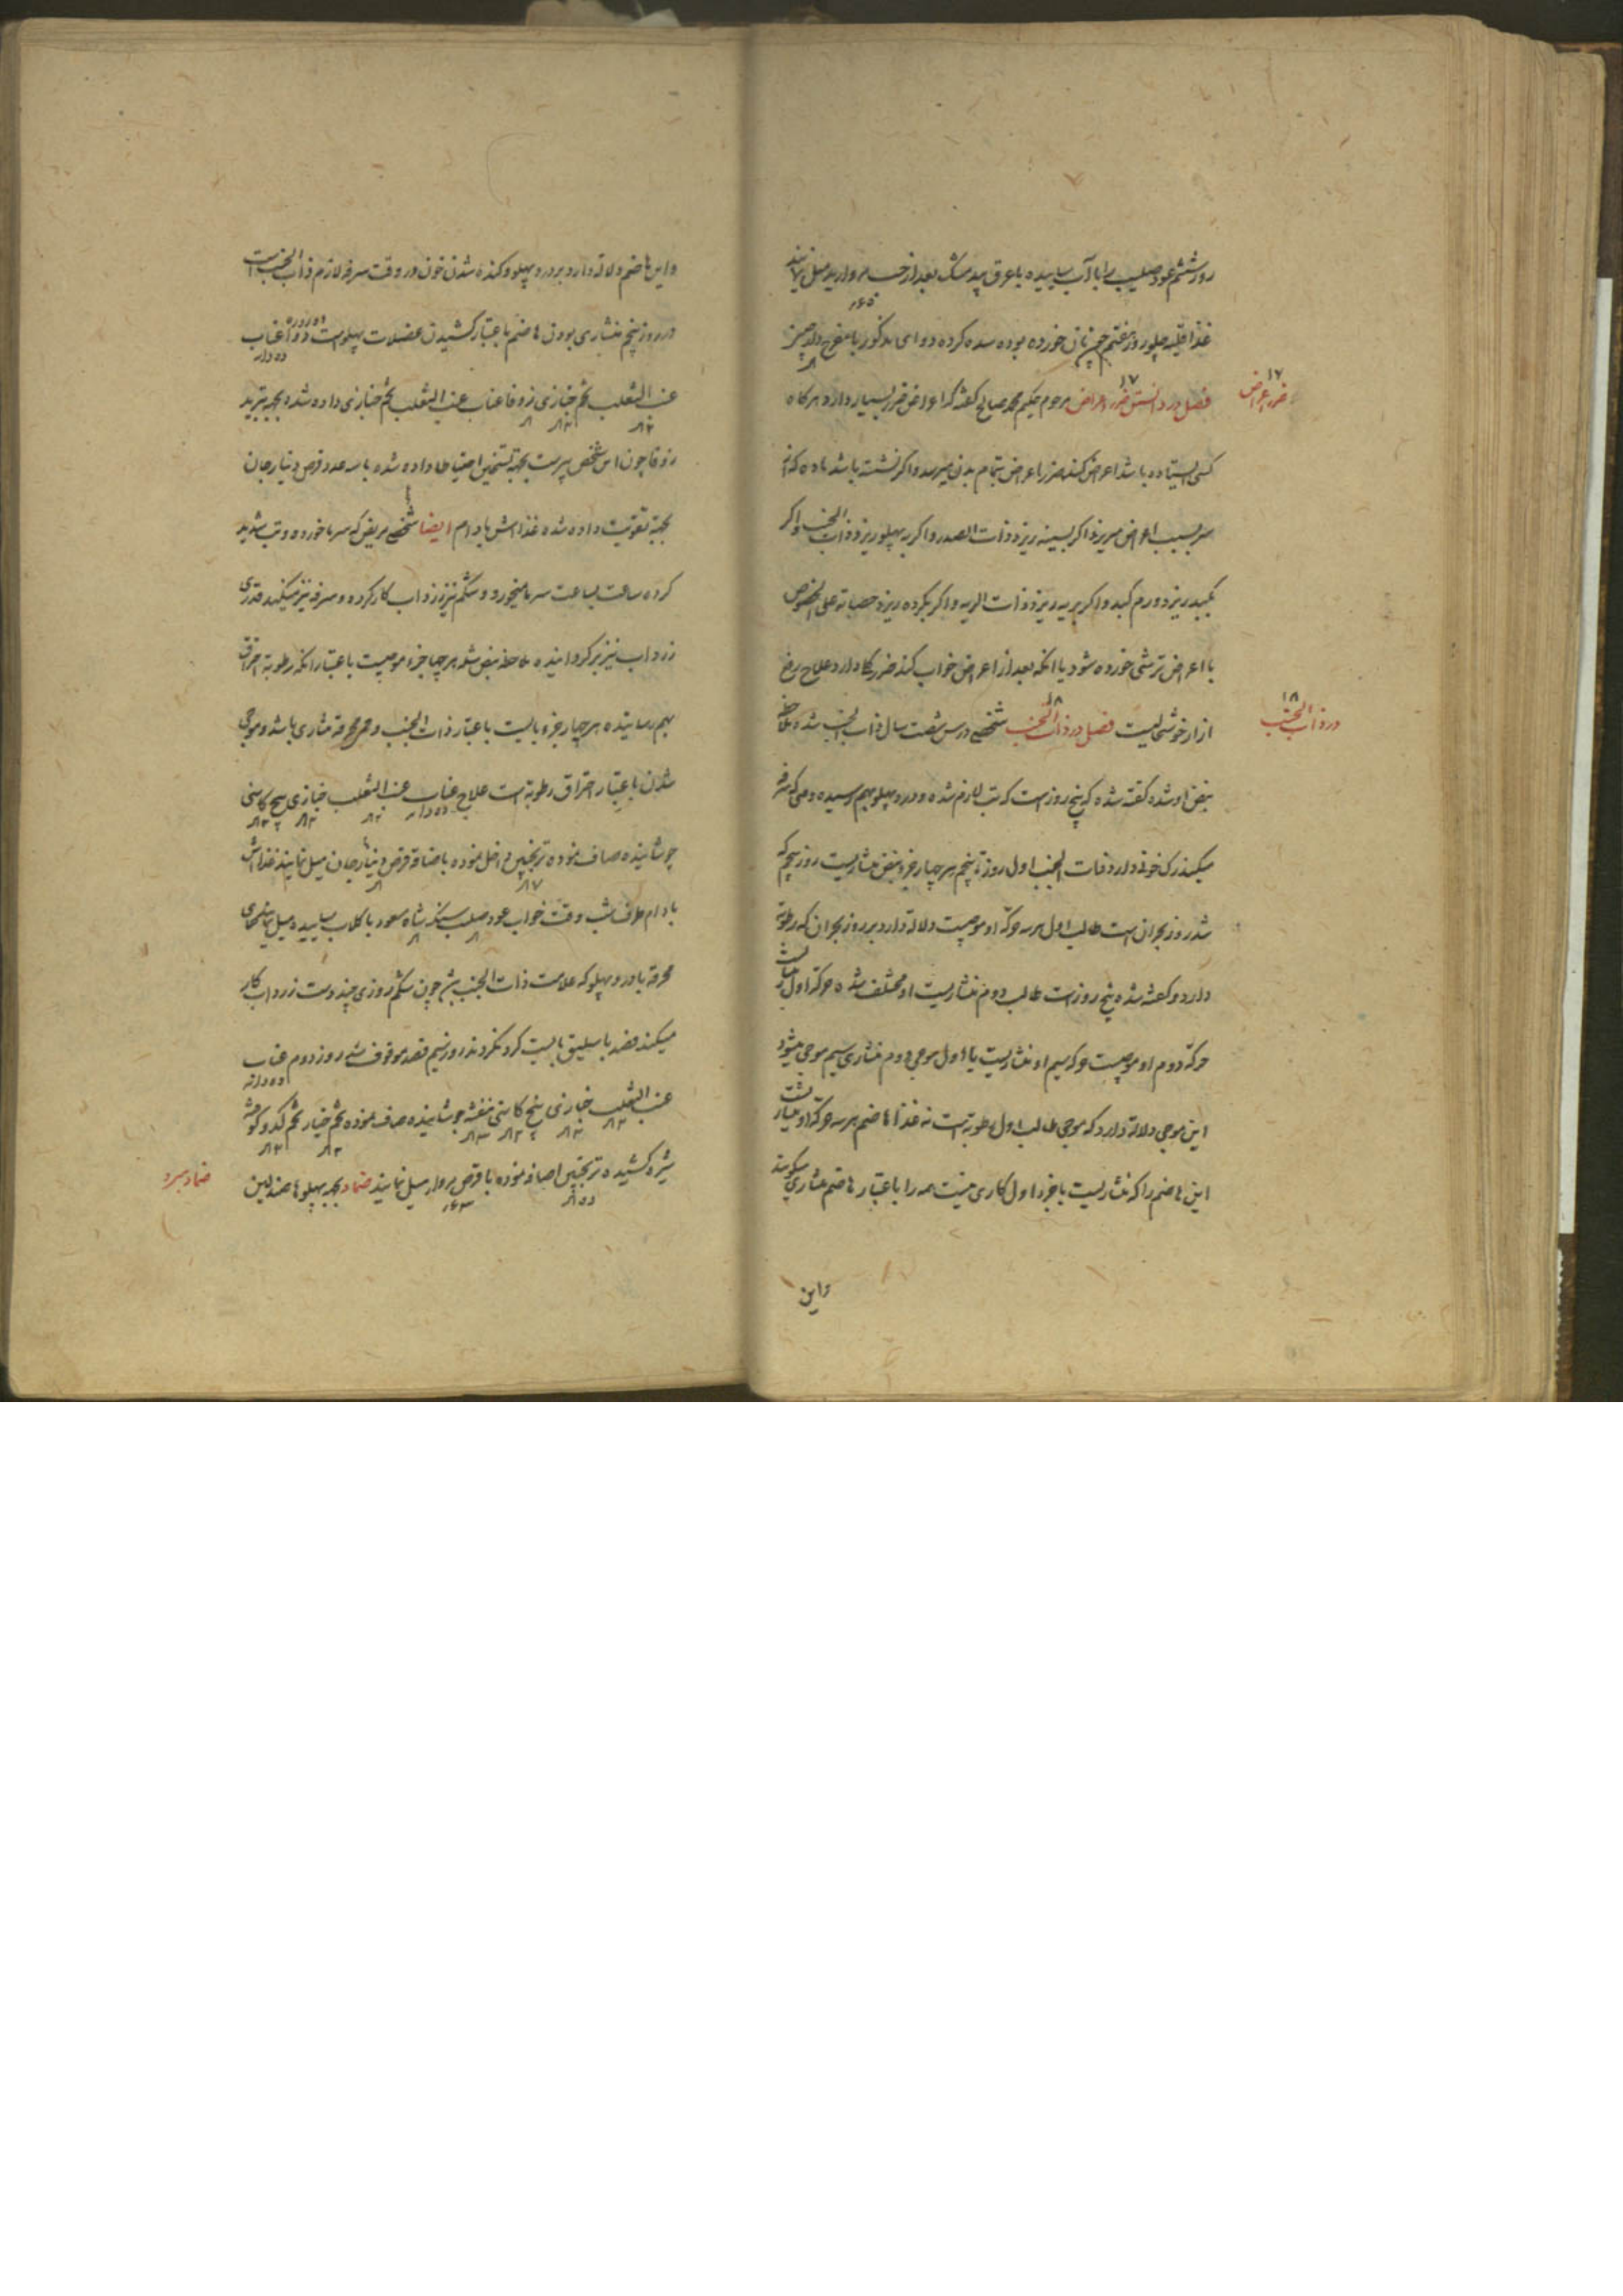 روز ششم عود صلیب را با آب ساییده با عرق بید مشک بعد از حب مروارید میل نمایند
غذا قلیه چلو روز هفتم چون نان خورده بوده سده کرده دوای مذکور با مفرح دلاچین
فصل در دانستن ضرر اعراض مرحوم حکیم محمد صالح گفته که اعراض ضرر بسیار دارد هرگاه
۱۷
ضرر اعراض
کسی ایستاده باشد اعراض کند ضرر اعراض بتمام بدن میرسد و اگر نشسته باشد ماده که از
سر بسبب اعراض میریزد اگر بسینه ریزد ذات الصدر و اگر به پهلو ریزد ذات الجنب و اگر
بکبد ریزد ورم کبد و اگر بریه ریزد ذات الریه و اگر بگرده ریزد حصاة علی الخصوص
با اعراض ترشی خورده شود یا آنکه بعد از اعراض خواب کند ضرر کلی دارد علاج رفع
ازار خوشحالیست فصل در ذات الجنب شخصی در سن شصت سال ذات الجنب شده ملاحظه
۱۸
در ذات الجنب
نبض او شده گفته شده که پنج روز است که تب لازم شده و درد پهلو بهم رسیده وقتی که سرفه
میکند رک خونی دارد ذات الجنب اول روز تا پنجم هر چهار جزء نبض منشاریست روز پنجم که
شد روز بحران است طالب اول هر سه حرکة او موجیست دلالة دارد بر روز بحران که رطوبة
دارد و گفته شده پنج روز است طالب دوم منشاریست او مختلف شده حرکة اول
حرکة دوم او موجیست حرکة سیم او منشاریست یا اول موجی دوم منشاری سیم موجی میشود
این موجی دلالة دارد که موجی طالب اول رطوبة است نه غذا هاضم هر سه حرکة او
این هاضم را که منشاریست با جزء اول کاری نیست همه را باعتبار هاضم منشاری میگویند
واین
واین هاضم دلالة دارد بر درد پهلو و کنده شدن خون در وقت سرفه لازم ذات الجنب است
در روز پنجم منشاری بودن هاضم باعتبار کشیدن عضلات پهلو است دوا عناب
ده دانه
عنب الثعلب تخم خبازی زوفا عناب عنب الثعلب تخم خبازی داده شده بجهة تبرید
زوفا چون این شخص پیر است بجهة تسخین احتیاطا داده شده با سه عدد قرص دینار جان
بجهة تقویت داده شده غذا آش بادام ایضا شخصی مریض که سرما خورده و تب شدید
کرده ساعت بساعت سرما میخورد و شکم نیز زرداب کار کرده و سرفه نیز میکند قدری
زرداب نیز بر گردانیده ملاحظه نبض شده هر چهار جزء موجیست باعتبار آنکه رطوبة احتراق
بهم رسانیده هر چهار جزء بایست باعتبار ذات الجنب و محرقه منشاری باشد و موجی
شدن باعتبار احتراق رطوبة است علاج عناب عنب الثعلب خبازی بیخ کاسنی
ده دانه
جوشانیده صاف نموده ترنجبین داخل نموده باضافه قرص دینار جان میل نمایند غذا آش
بادام طرف شب وقت خواب عود صلیب سنگ شاه مسعود با گلاب ساییده میل نمایند
محرقه با درد پهلو که علامت ذات الجنب چون شکم روزی چند دست زرداب کار
میکند فصد باسلیق بایست کرد نکردند روز سیم فصد موقوف شد روز دوم عناب
ده دانه
عنب الثعلب خبازی بیخ کاسنی بنفشه جوشانیده صاف نموده تخم خیار تخم کدو
شیره کشیده ترنجبین اضافه نموده با قرص مروارید میل نمایند ضماد بجهة پهلو ها صندلین
ضماد سرد